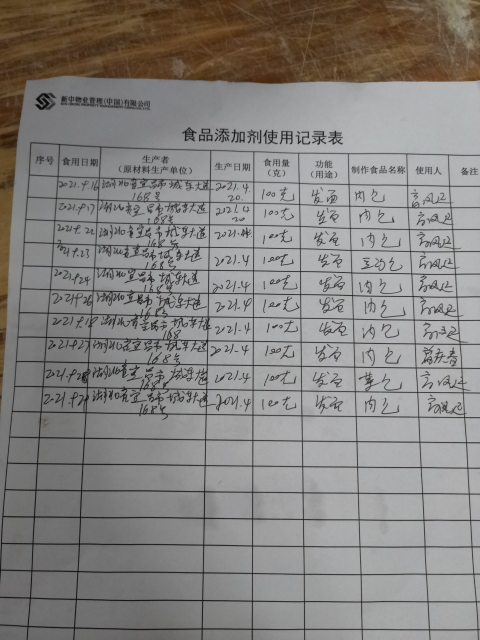 新中物业管理(中国)有限公司
食品添加剂使用记录表
序号 食用日期 生产者（原材料生产单位） 生产日期 食用量（克） 功能（用途） 制作食品名称 使用人 备注
2021.9.16 湖北省宜昌市城东大道168号 2021.4.20 100克 发面 肉包
2021.9.17 湖北省宜昌市城东大道168号 2021.4.20 100克 发面 肉包
2021.9.22 湖北省宜昌市城东大道168号 2021.4 100克 发面 肉包
2021.9.23 湖北省宜昌市城东大道168号 2021.4 100克 发面 豆沙包
2021.9.24 湖北省宜昌市城东大道168号 2021.4 100克 发面 肉包
湖北省宜昌市城东大道168号 2021.4 100克 发面 肉包
湖北省宜昌市城东大道168 2021.4 100克 发面 肉包
2021.9.27 湖北省宜昌市城东大道168号 2021.4 100克 发面 肉包
湖北省宜昌市城东大道168号 2021.4 100克 发面 菜包
湖北省宜昌市城东大道168号 2021.4 100克 发面 肉包